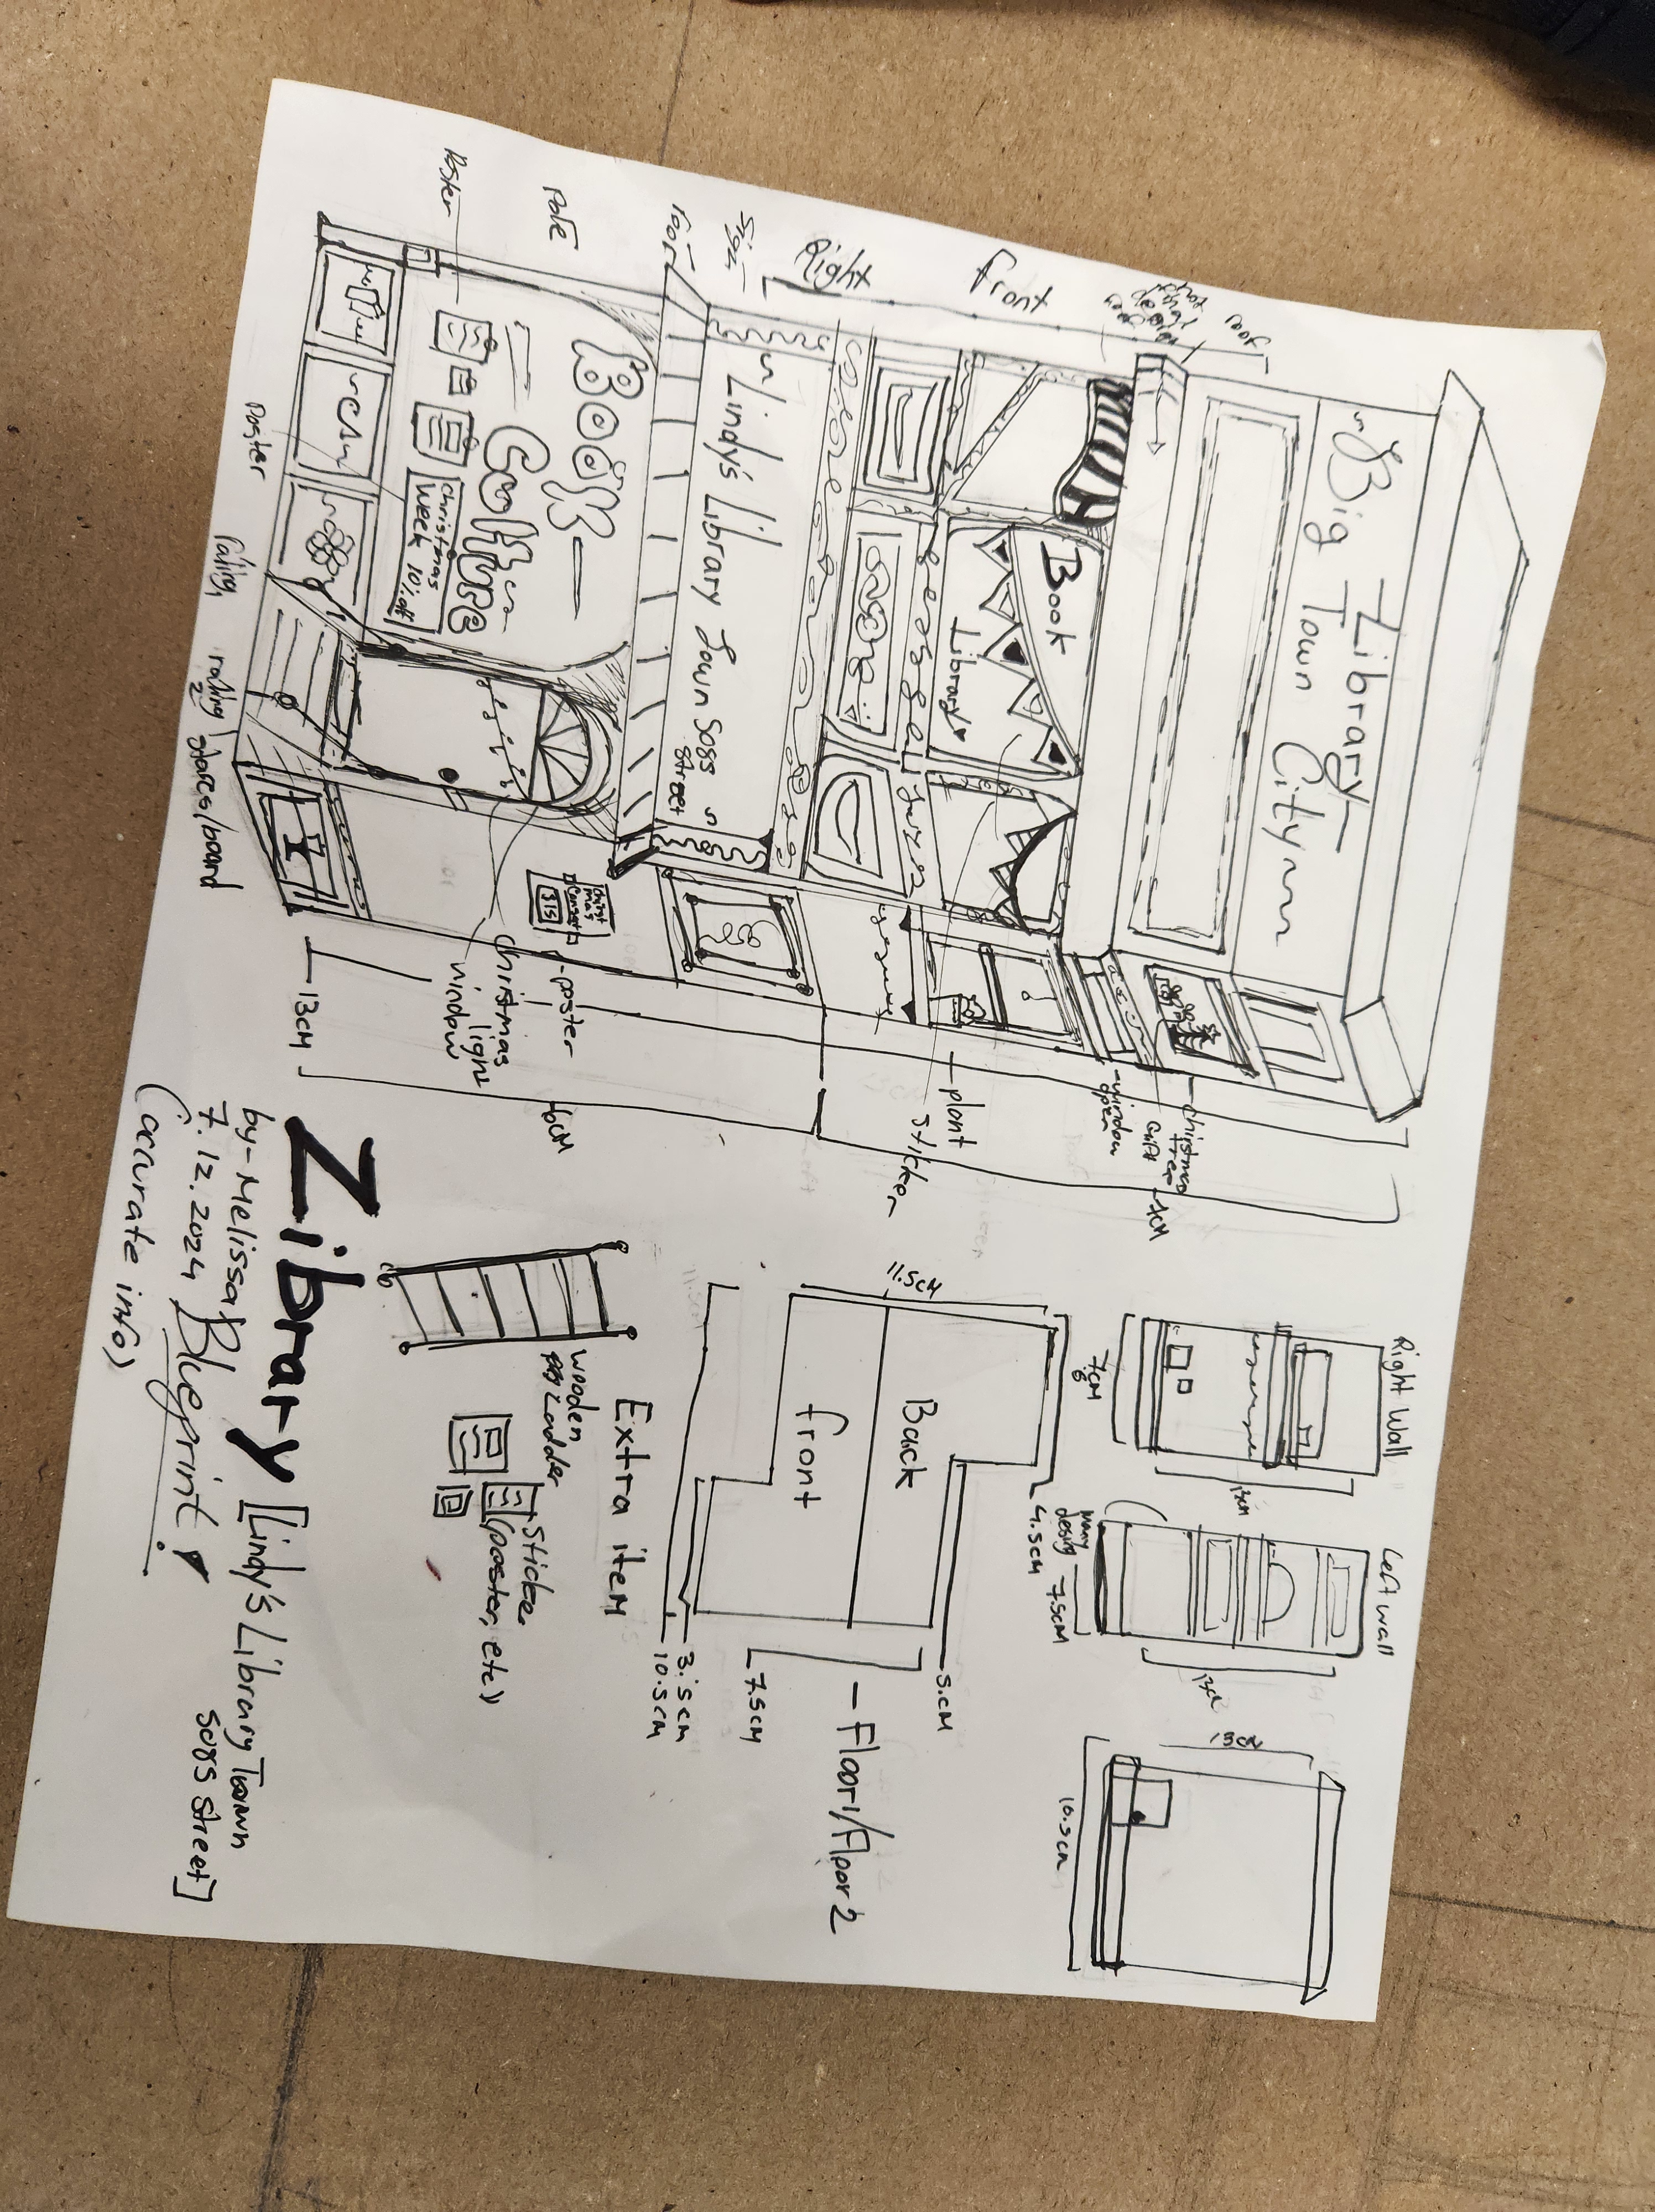 Big Library
Town City
roof
Front
Right
Sign
roof
Pole
Poster
Book
Library
Lindy's Library Town
5085
street
Book
Culture
Christmas
week 10% off
Poster
railing
railing
2
Christ
mas
Concert
$15
Christmas
tree
Gift
7cm
window
open
plant
sticker
poster
Christmas
light
window
13cm
Right Wall
7.6
cm
13cm
Left wall
many
desing
7.5cm
13cm
10.5cm
11.5cm
4.5cm
Back
front
5.cm
Floor1/Floor 2
7.5cm
3.5cm
10.5cm
Extra item
wooden
Ladder
Sticker
(poster, etc)
Library [Lindy's Library Town
5085 street]
by-Melissa
7.12.2024 Bleprint!
(accurate info)